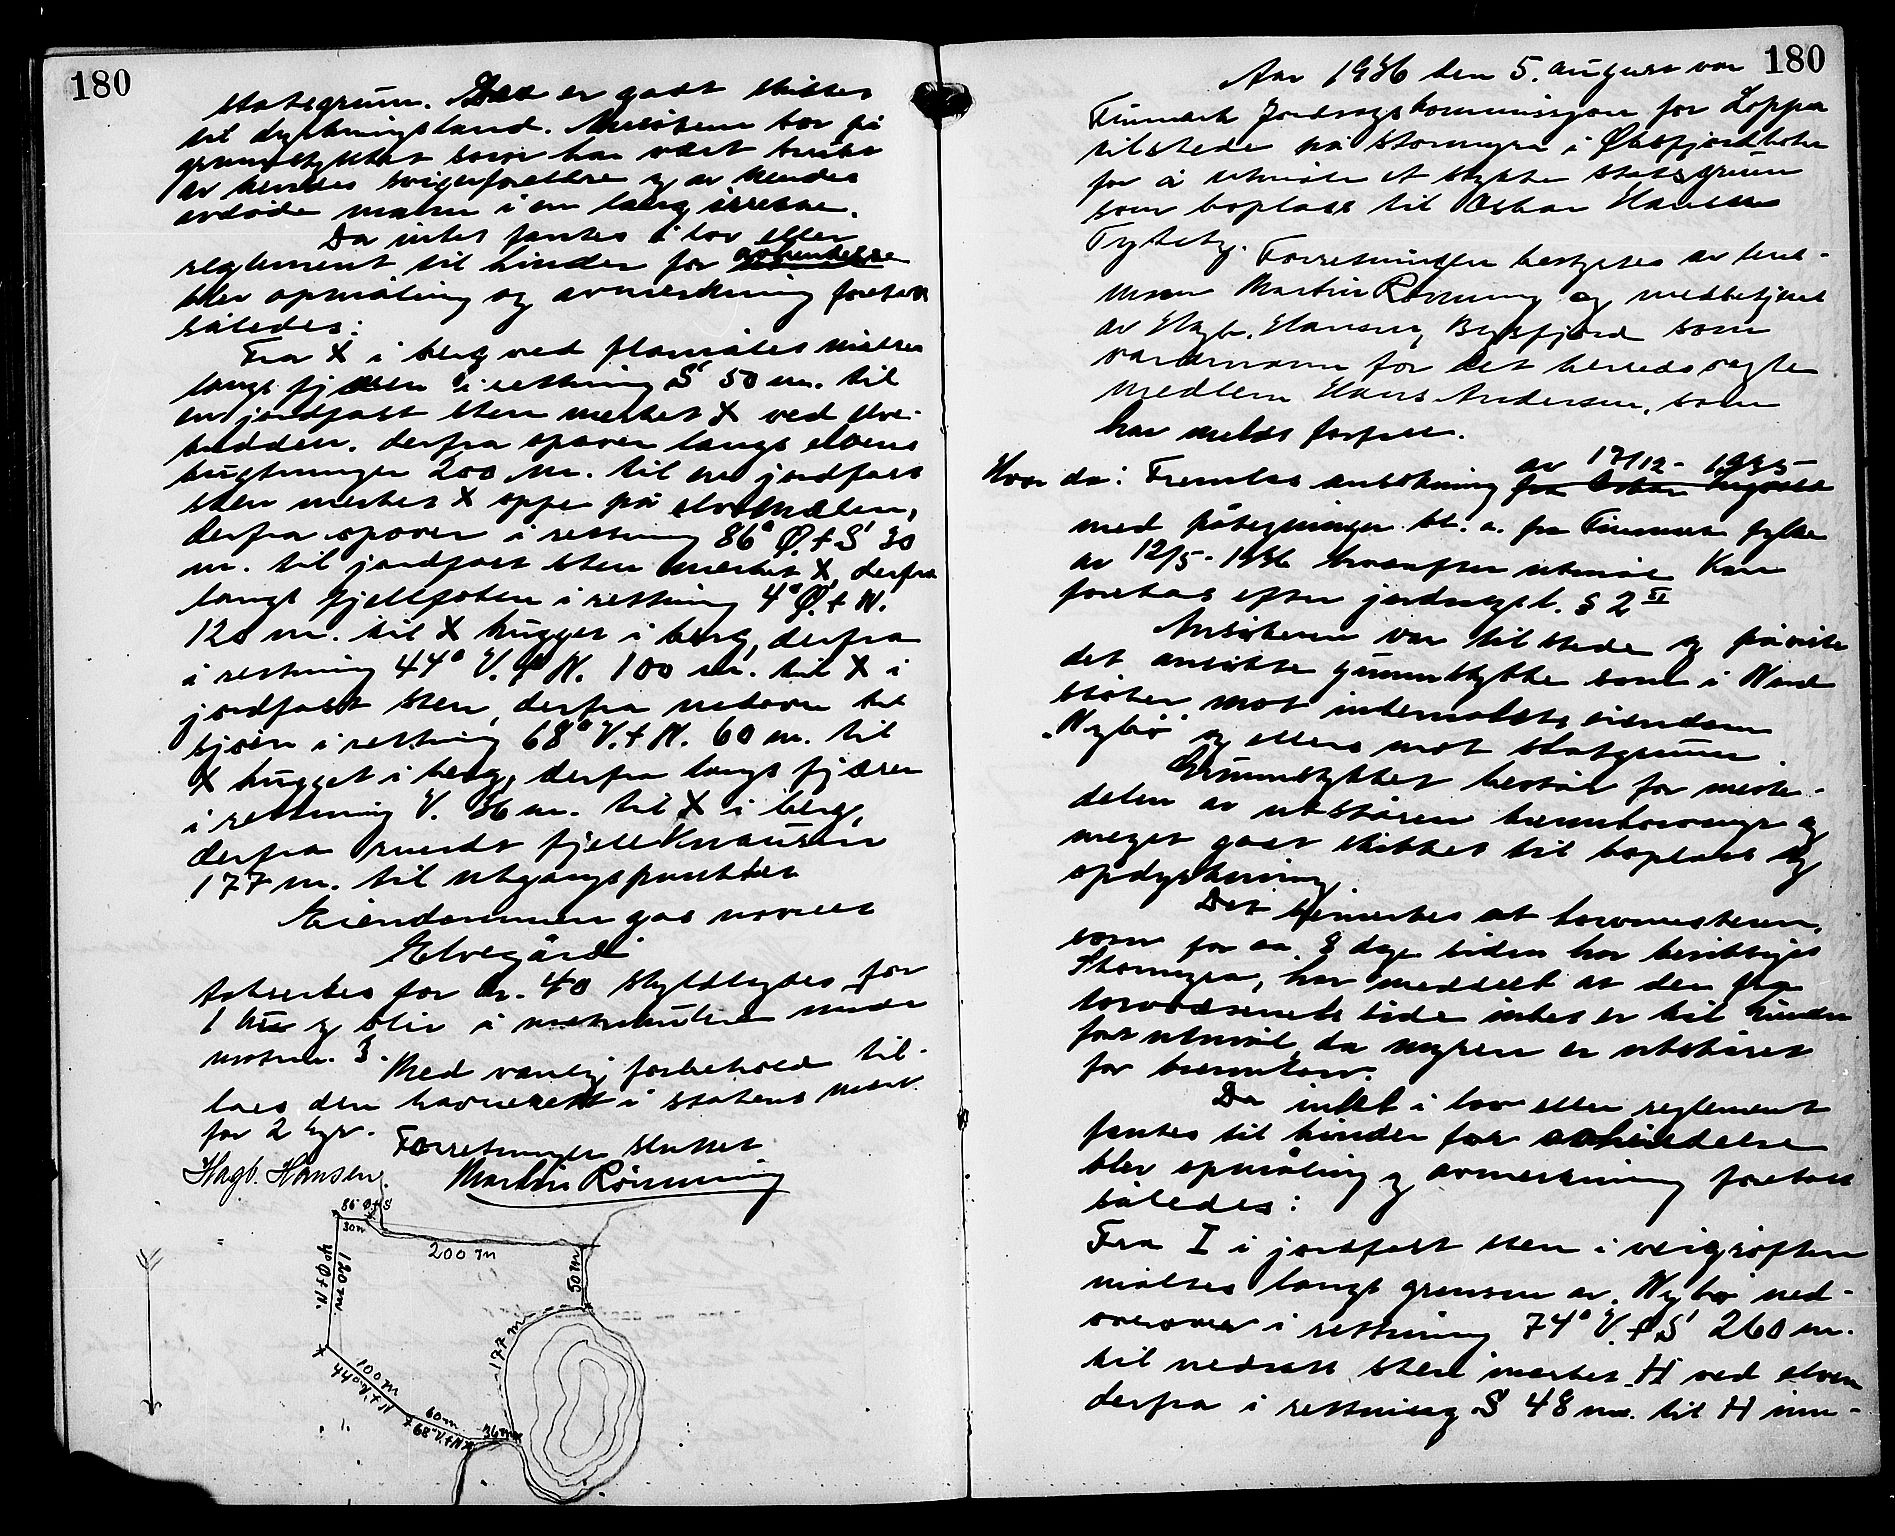 180
statsgrunn. Det er godt skikket
til dyrkningsland. Ansökeren bor på
grunnstykket som har vært brukt
av hendes svigerforeldre og av hendes
avdöde mann i en lang årrekke.
Da intet fantes i lov eller
reglement til hinder for avhendelse
blev opmåling og avmerkning foretatt
således:
Fra X i berg ved flomålet måltes
langs fjæren i retning S 50 m. til
en jordfast sten merket X ved elve-
bredden. derfra opover langs elvens
bugtninger 200 m. til en jordfast
sten merket X oppe på elvemælen,
derfra opover i retning 86° Ø. t S 30
m. til jordfast sten merket X, derfra
langs fjellfoten i retning 4° Ø. t N.
120 m. til X hugget i berg, derfra
i retning 44° V. t N. 100 m. til X i
jordfast sten, derfra nedover til
sjøen i retning 68° V. t N. 60 m. til
X hugget i berg, derfra langs fjæren
i retning V. 36 m. til X i berg,
derfra rundt fjellknausen
177 m. til utgangspunktet
Eiendommen gas navnet
Elvegård
takseres for kr. 40 skyldlegges for
1 øre og blir i matrikulen under
matrn. 3.
Med vanlig forbehold til-
laes den havnerett i statens mark
for 2 kyr.
Forretningen sluttet
Hagb. Hansen. Martin Rönning
86° Ø t S
30 m
200 m
50 m
120 m.
4° Ø t N.
177 m
100 m
44° V. t N
60 m
68° V. t N
36 m
180
Aar 1936 den 5. august var
Finmark Jordsalgskommissjon for Loppa
tilstede på Stormyra i Øksfjordbotn
for å utmåle et stykke statsgrunn
som boplass til Oskar Hansen
Forretningen bestyrtes av lens-
mann Martin Rönning og medbetjent
av Hagb. Hansen, Bergsfjord som
varamann for det herredsvalgte
medlem Hans Andersen, som
har meldt forfall.
Hvor da: Fremlas ansökning av 17/12 - 1935
med påtegninger bl. a. fra Finmark fylke
av 12/5 - 1936 hvorefter utmål kan
foretas efter jordsalgsl. § 2 II
Ansökeren var tilstede og påviste
det ansökte grunnstykke som i Nord
stöter mot innmålets eiendom
"Nybö" og ellers mot statsgrunn.
Grunnstykket består for meste-
delen av utskåren brenntorvmyr og
meget godt skikket til boplass og
opdyrkning.
Det bemerkes at torvmesteren,
som for ca. 8 dage siden har besiktiget
Stormyra, har meddelt at der fra
torvvæsenets side intet er til hinder
for utmål, da myren er utskåret
for brenntorv.
Da intet i lov eller reglement
fantes til hinder for avhendelse
blev opmåling og avmerkning foretatt
således:
Fra I i jordfast sten i veigröften
måltes langs grensen av Nybö ned-
over i retning 74° V. t S 260 m.
til nedsatt sten merket H ved elven
derfra i retning S 48 m. til H inn-